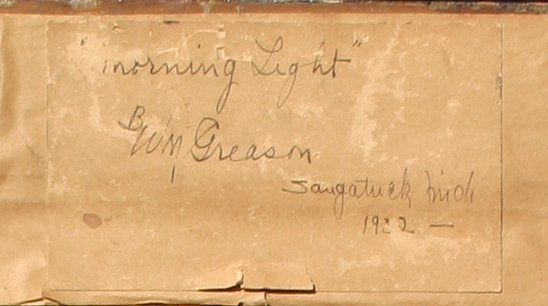 "Morning Light"
By
Wm Greason
Saugatuck Mich
1922 —